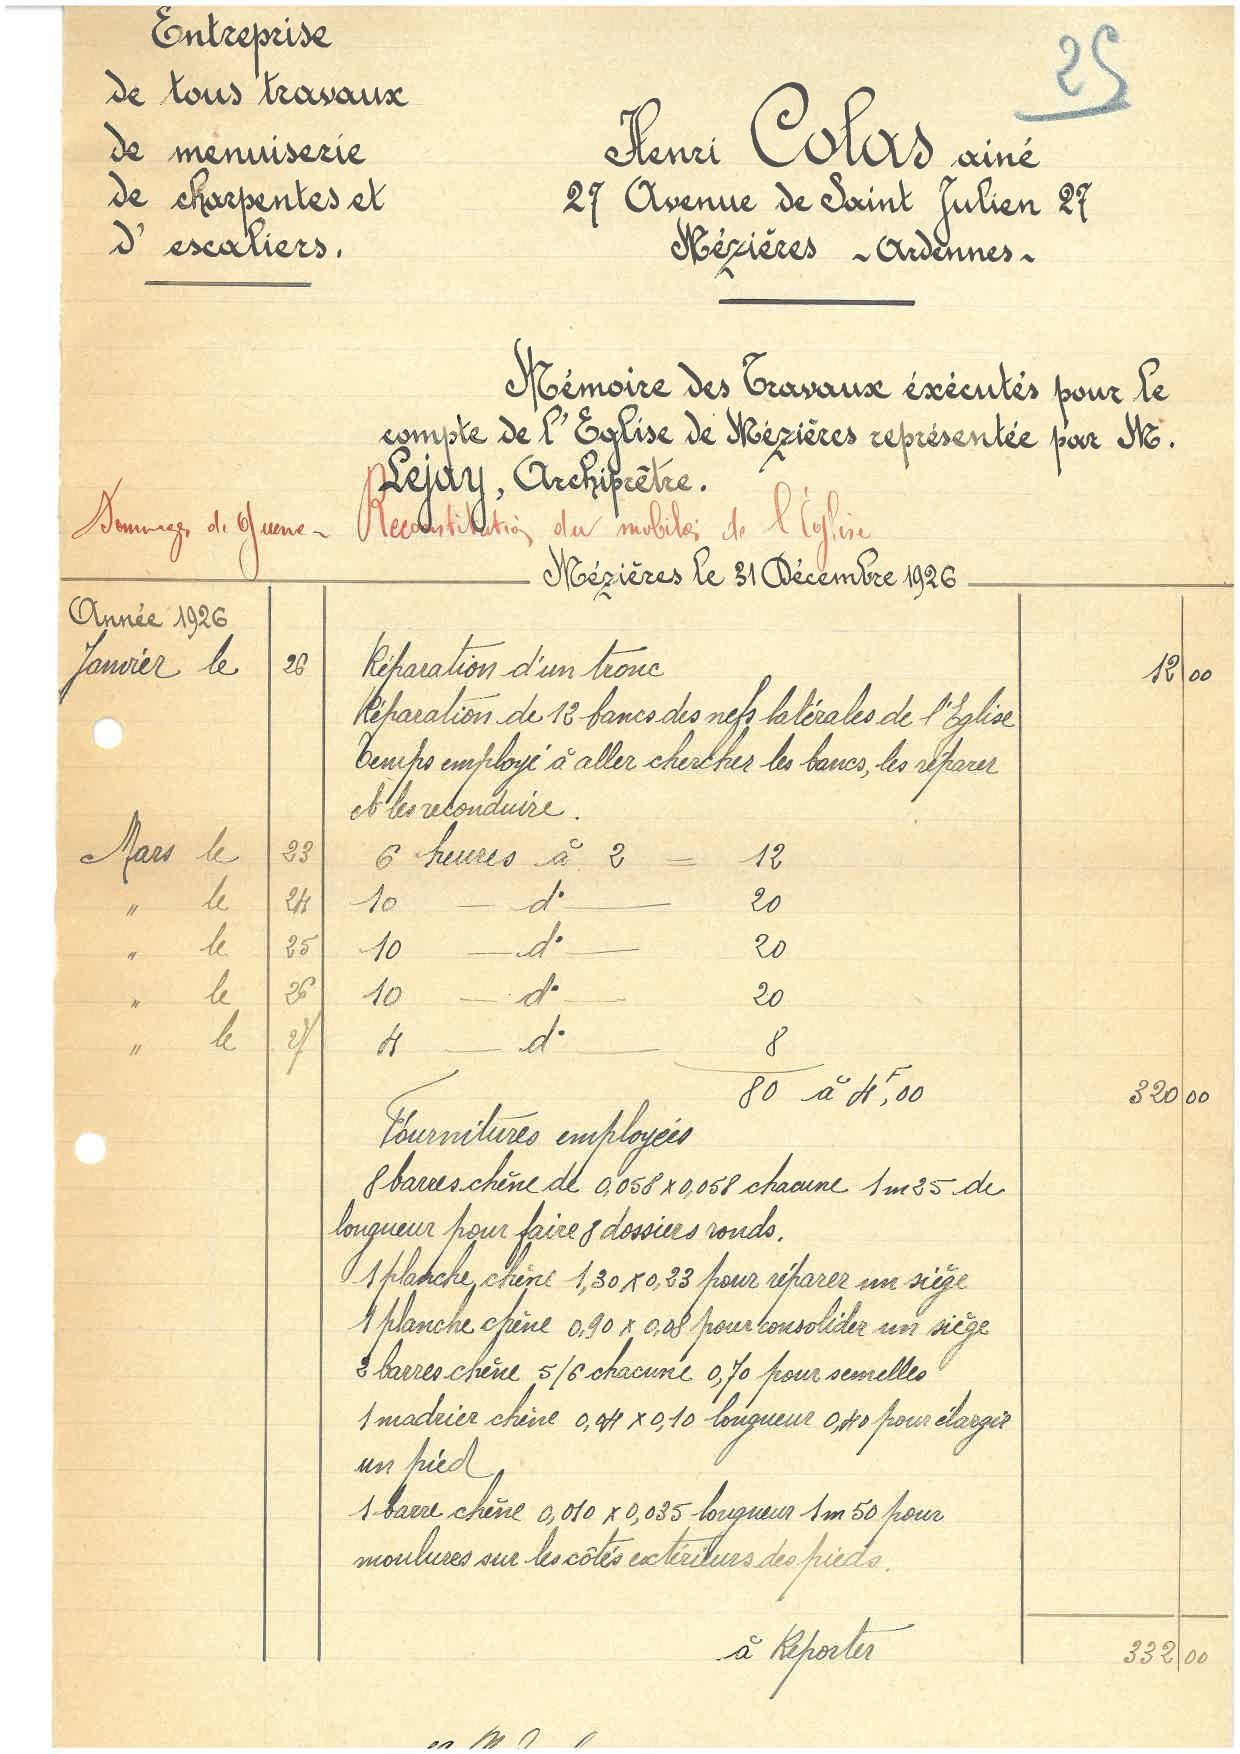 Entreprise
de tous travaux
de menuiserie
de charpentes et
d'escaliers.
25
Henri Colas ainé
27 Avenue de Saint Julien 27
Mézières - Ardennes -
Mémoire des Travaux éxécutés pour le
compte de l'Eglise de Mézières représentée par M.
Lejay, Archiprêtre.
Dommages de Guerre - Reconstitution du mobilier de l'Église
Mézières le 31 Décembre 1926
Année 1926
Janvier le 26 Réparation d'un tronc 12 00
Réparation de 12 bancs des nefs latérales de l'Eglise
Temps employé à aller chercher les bancs, les réparer
et les reconduire.
Mars le 23 6 heures à 2 = 12
" le 24 10 — d° — 20
" le 25 10 — d° — 20
" le 26 10 — d° — 20
" le 27 4 — d° — 8
80 à 4F,00 320 00
Fournitures employées
8 barres chêne de 0,058 x 0,058 chacune 1m25 de
longueur pour faire 8 dossiers ronds.
1 planche chêne 1,30 x 0,23 pour réparer un siège
1 planche chêne 0,90 x 0,08 pour consolider un siège
barres chêne 5/6 chacune 0,70 pour semelles
1 madrier chêne x 0,10 longueur 0,40 pour élargir
un pied
1 barre chêne 0,010 x 0,035 longueur 1m50 pour
moulures sur les côtés extérieurs des pieds.
à Reporter 332 00